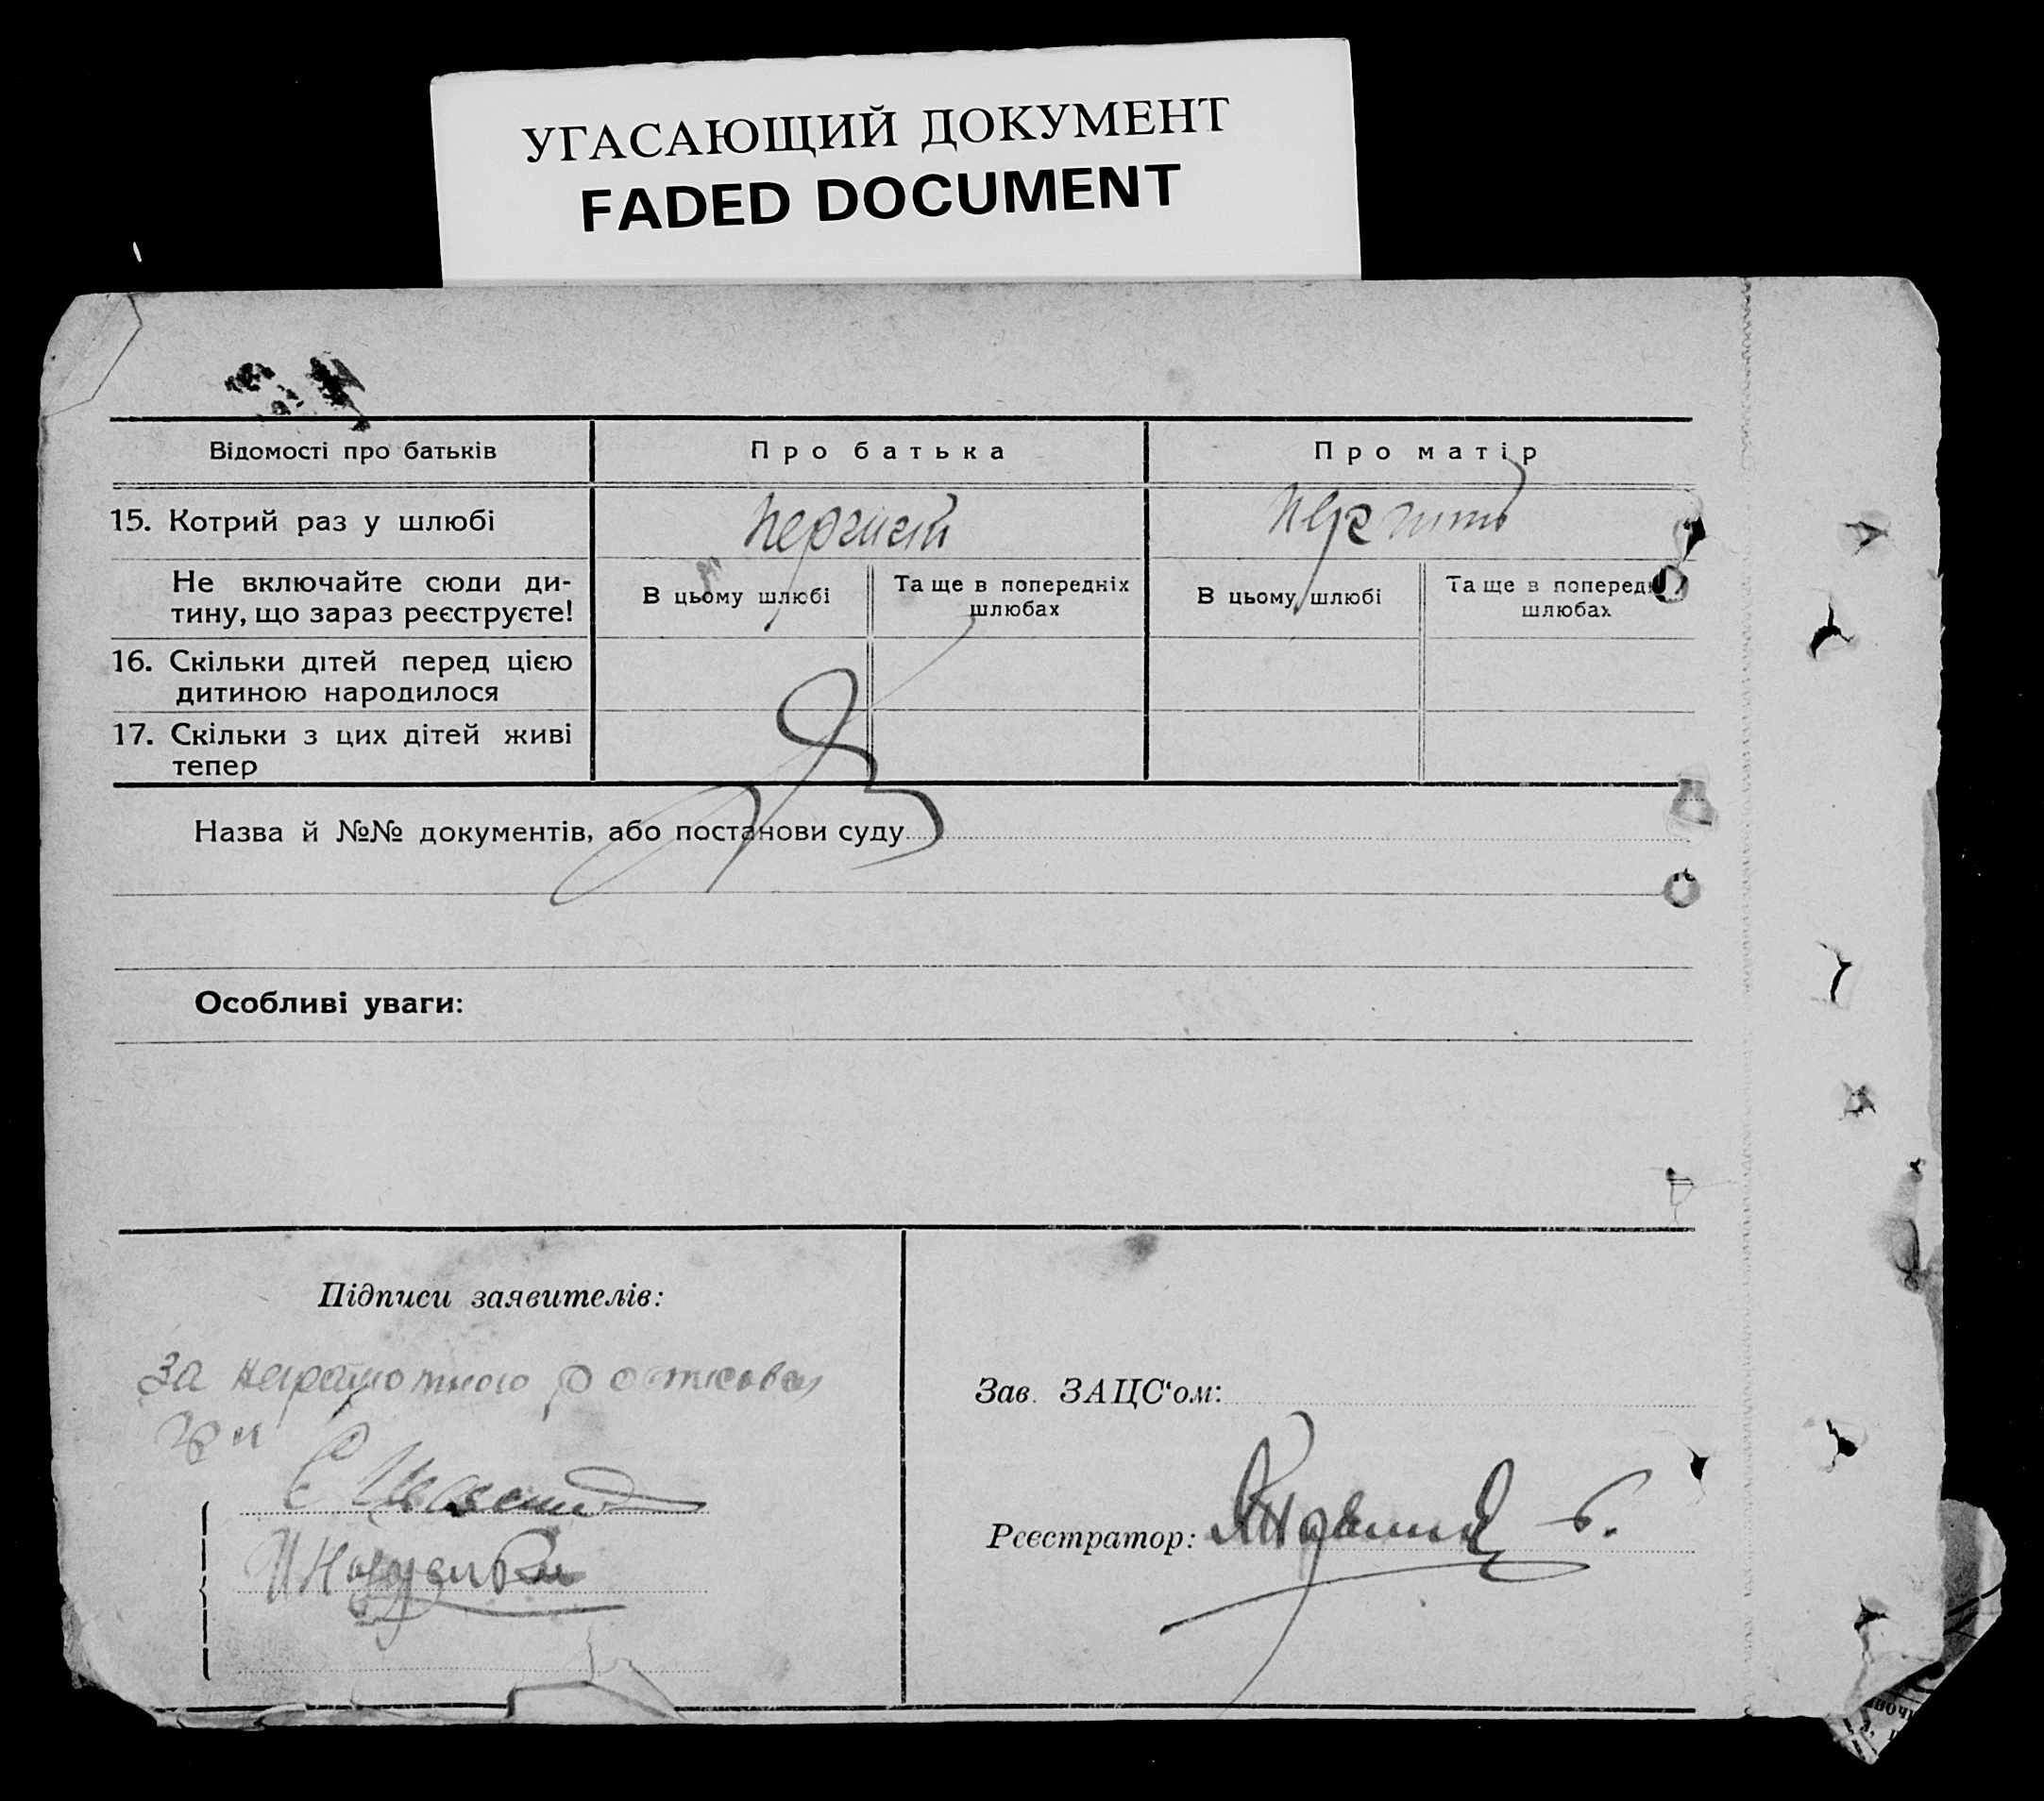 УГАСАЮЩИЙ ДОКУМЕНТ
FADED DOCUMENT
Відомості про батьків
Про батька
Про матір
15. Котрий раз у шлюбі
Не включайте сюди ди-
тину, що зараз реєструєте!
В цьому шлюбі
Та ще в попередніх
шлюбах
В цьому шлюбі
Та ще в поперед
шлюбах
16. Скільки дітей перед цією
дитиною народилося
17. Скільки з цих дітей живі
тепер
Назва й №№ документів, або постанови суду
Особливі уваги:
Підписи заявителів:
За
Зав. ЗАЦС'ом:
Реєстратор: